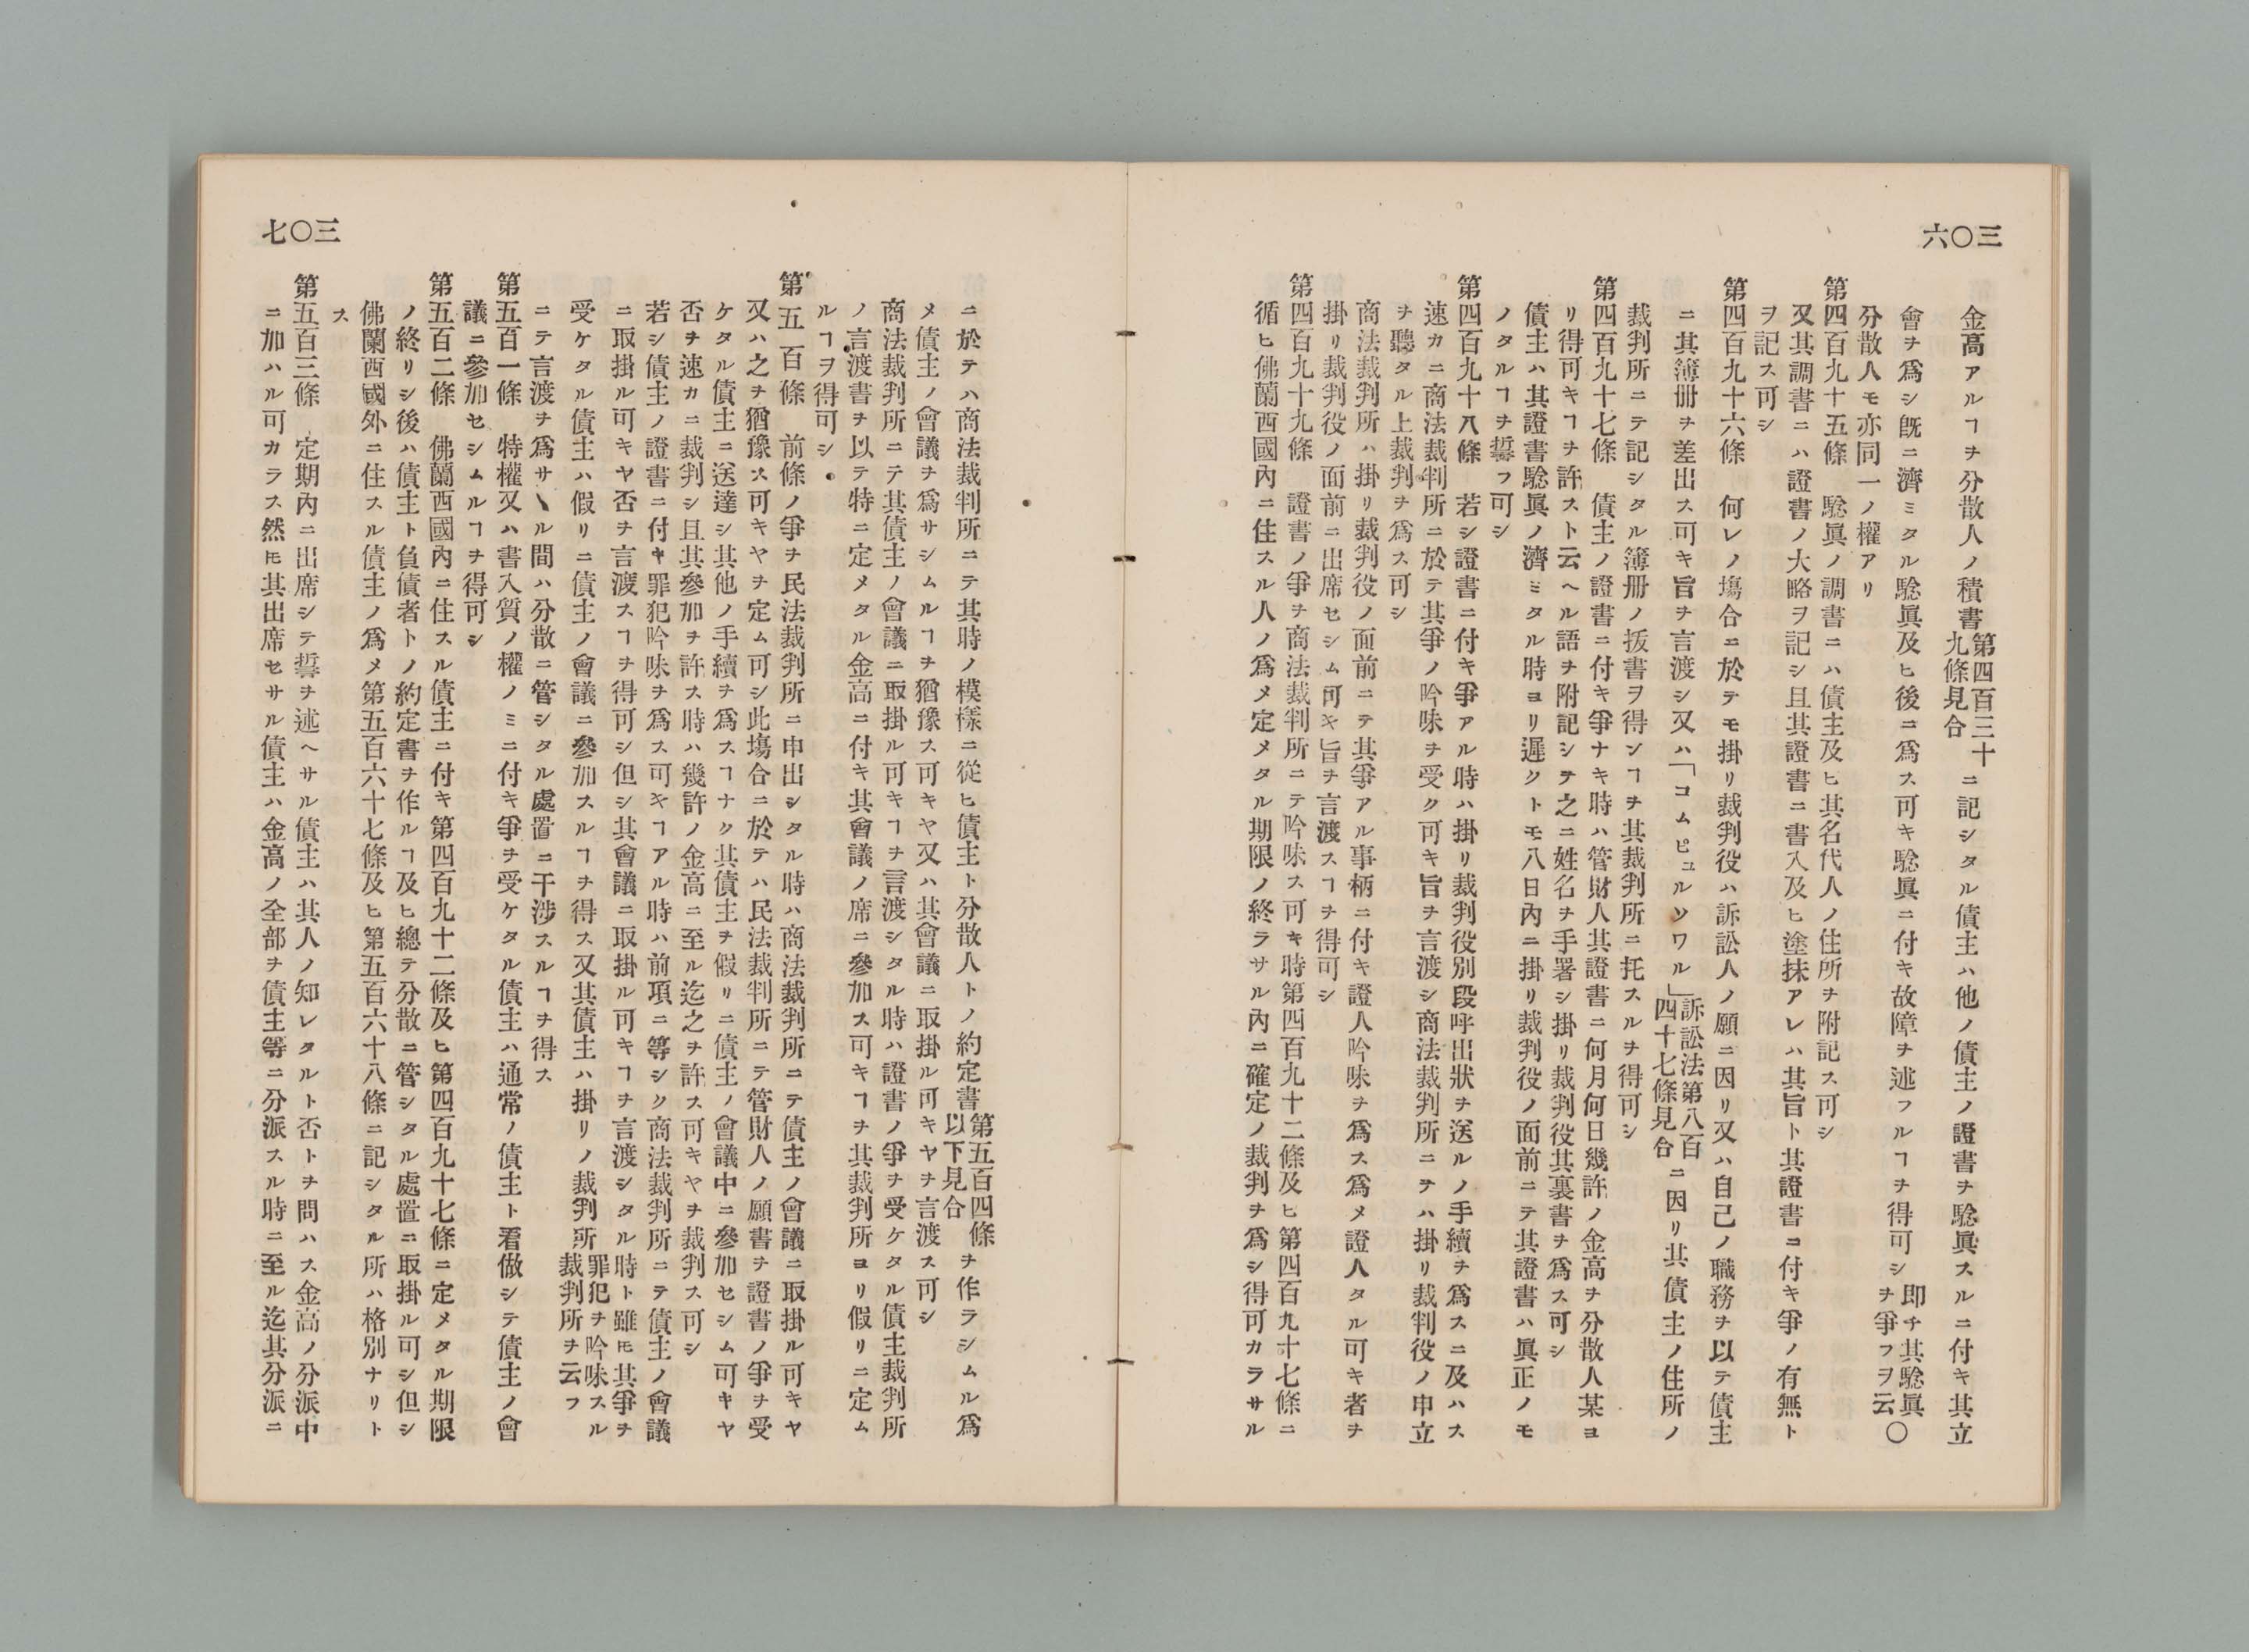 三〇六
金高アルヿヲ分散人ノ積書第四百三十九條見合ニ記シタル債主ハ他ノ債主ノ證書ヲ驗眞スルニ付キ其立
會ヲ爲シ既ニ濟ミタル驗眞及ヒ後ニ爲ス可キ驗眞ニ付キ故障ヲ述フルヿヲ得可シ即チ其驗眞ヲ爭フヲ云〇
分散人モ亦同一ノ權アリ
第四百九十五條 驗眞ノ調書ニハ債主及ヒ其名代人ノ住所ヲ附記ス可シ
又其調書ニハ證書ノ大略ヲ記シ且其證書ニ書入及ヒ塗抹アレハ其旨ト其證書ニ付キ爭ノ有無ト
ヲ記ス可シ
第四百九十六條 何レノ塲合ニ於テモ掛リ裁判役ハ訴訟人ノ願ニ因リ又ハ自己ノ職務ヲ以テ債主
ニ其簿册ヲ差出ス可キ旨ヲ言渡シ又ハ「コムピュルソワル」訴訟法第八百四十七條見合ニ因リ其債主ノ住所ノ
裁判所ニテ記シタル簿册ノ拔書ヲ得ンヿヲ其裁判所ニ托スルヲ得可シ
第四百九十七條 債主ノ證書ニ付キ爭ナキ時ハ管財人其證書ニ何月何日幾許ノ金高ヲ分散人某ヨ
リ得可キヿヲ許スト云ヘル語ヲ附記シテ之ニ姓名ヲ手署シ掛リ裁判役其裏書ヲ爲ス可シ
債主ハ其證書驗眞ノ濟ミタル時ヨリ遲クトモ八日內ニ掛リ裁判役ノ面前ニテ其證書ハ眞正ノモ
ノタルヿヲ誓フ可シ
第四百九十八條 若シ證書ニ付キ爭アル時ハ掛リ裁判役別段呼出狀ヲ送ルノ手續ヲ爲スニ及ハス
速カニ商法裁判所ニ於テ其爭ノ吟味ヲ受ク可キ旨ヲ言渡シ商法裁判所ニテハ掛リ裁判役ノ申立
ヲ聽タル上裁判ヲ爲ス可シ
商法裁判所ハ掛リ裁判役ノ面前ニテ其爭アル事柄ニ付キ證人吟味ヲ爲ス爲メ證人タル可キ者ヲ
掛リ裁判役ノ面前ニ出席セシム可キ旨ヲ言渡スヿヲ得可シ
第四百九十九條 證書ノ爭ヲ商法裁判所ニテ吟味ス可キ時第四百九十二條及ヒ第四百九十七條ニ
循ヒ佛蘭西國內ニ住スル人ノ爲メ定メタル期限ノ終ラサル內ニ確定ノ裁判ヲ爲シ得可カラサル
三〇七
ニ於テハ商法裁判所ニテ其時ノ模樣ニ從ヒ債主ト分散人トノ約定書第五百四條以下見合ヲ作ラシムル爲
メ債主ノ會議ヲ爲サシムルヿヲ猶豫ス可キヤ又ハ其會議ニ取掛ル可キヤヲ言渡ス可シ
商法裁判所ニテ其債主ノ會議ニ取掛ル可キヿヲ言渡シタル時ハ證書ノ爭ヲ受ケタル債主裁判所
ノ言渡書ヲ以テ特ニ定メタル金高ニ付キ其會議ノ席ニ參加ス可キヿヲ其裁判所ヨリ假リニ定ム
ルヿヲ得可シ
第五百條 前條ノ爭ヲ民法裁判所ニ申出シタル時ハ商法裁判所ニテ債主ノ會議ニ取掛ル可キヤ
又ハ之ヲ猶豫ス可キヤヲ定ム可シ此塲合ニ於テハ民法裁判所ニテ管財人ノ願書ヲ證書ノ爭ヲ受
ケタル債主ニ送達シ其他ノ手續ヲ爲スヿナク其債主ヲ假リニ債主ノ會議中ニ參加セシム可キヤ
否ヲ速カニ裁判シ且其參加ヲ許ス時ハ幾許ノ金高ニ至ル迄之ヲ許ス可キヤヲ裁判ス可シ
若シ債主ノ證書ニ付キ罪犯吟味ヲ爲ス可キヿアル時ハ前項ニ等シク商法裁判所ニテ債主ノ會議
ニ取掛ル可キヤ否ヲ言渡スヿヲ得可シ但シ其會議ニ取掛ル可キヿヲ言渡シタル時ト雖モ其爭ヲ
受ケタル債主ハ假リニ債主ノ會議ニ參加スルヿヲ得ス又其債主ハ掛リノ裁判所罪犯ヲ吟味スル裁判所ヲ云フ
ニテ言渡ヲ爲サヽル間ハ分散ニ管シタル處置ニ干涉スルヿヲ得ス
第五百一條 特權又ハ書入質ノ權ノミニ付キ爭ヲ受ケタル債主ハ通常ノ債主ト看做シテ債主ノ會
議ニ參加セシムルヿヲ得可シ
第五百二條 佛蘭西國內ニ住スル債主ニ付キ第四百九十二條及ヒ第四百九十七條ニ定メタル期限
ノ終リシ後ハ債主ト負債者トノ約定書ヲ作ルヿ及ヒ總テ分散ニ管シタル處置ニ取掛ル可シ但シ
佛蘭西國外ニ住スル債主ノ爲メ第五百六十七條及ヒ第五百六十八條ニ記シタル所ハ格別ナリト
ス
第五百三條 定期內ニ出席シテ誓ヲ述ヘサル債主ハ其人ノ知レタルト否トヲ問ハス金高ノ分派中
ニ加ハル可カラス然モ其出席セサル債主ハ金高ノ全部ヲ債主等ニ分派スル時ニ至ル迄其分派ニ